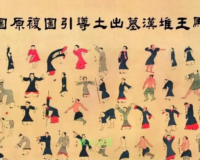 馬王堆漢墓出土導引圖復原圖